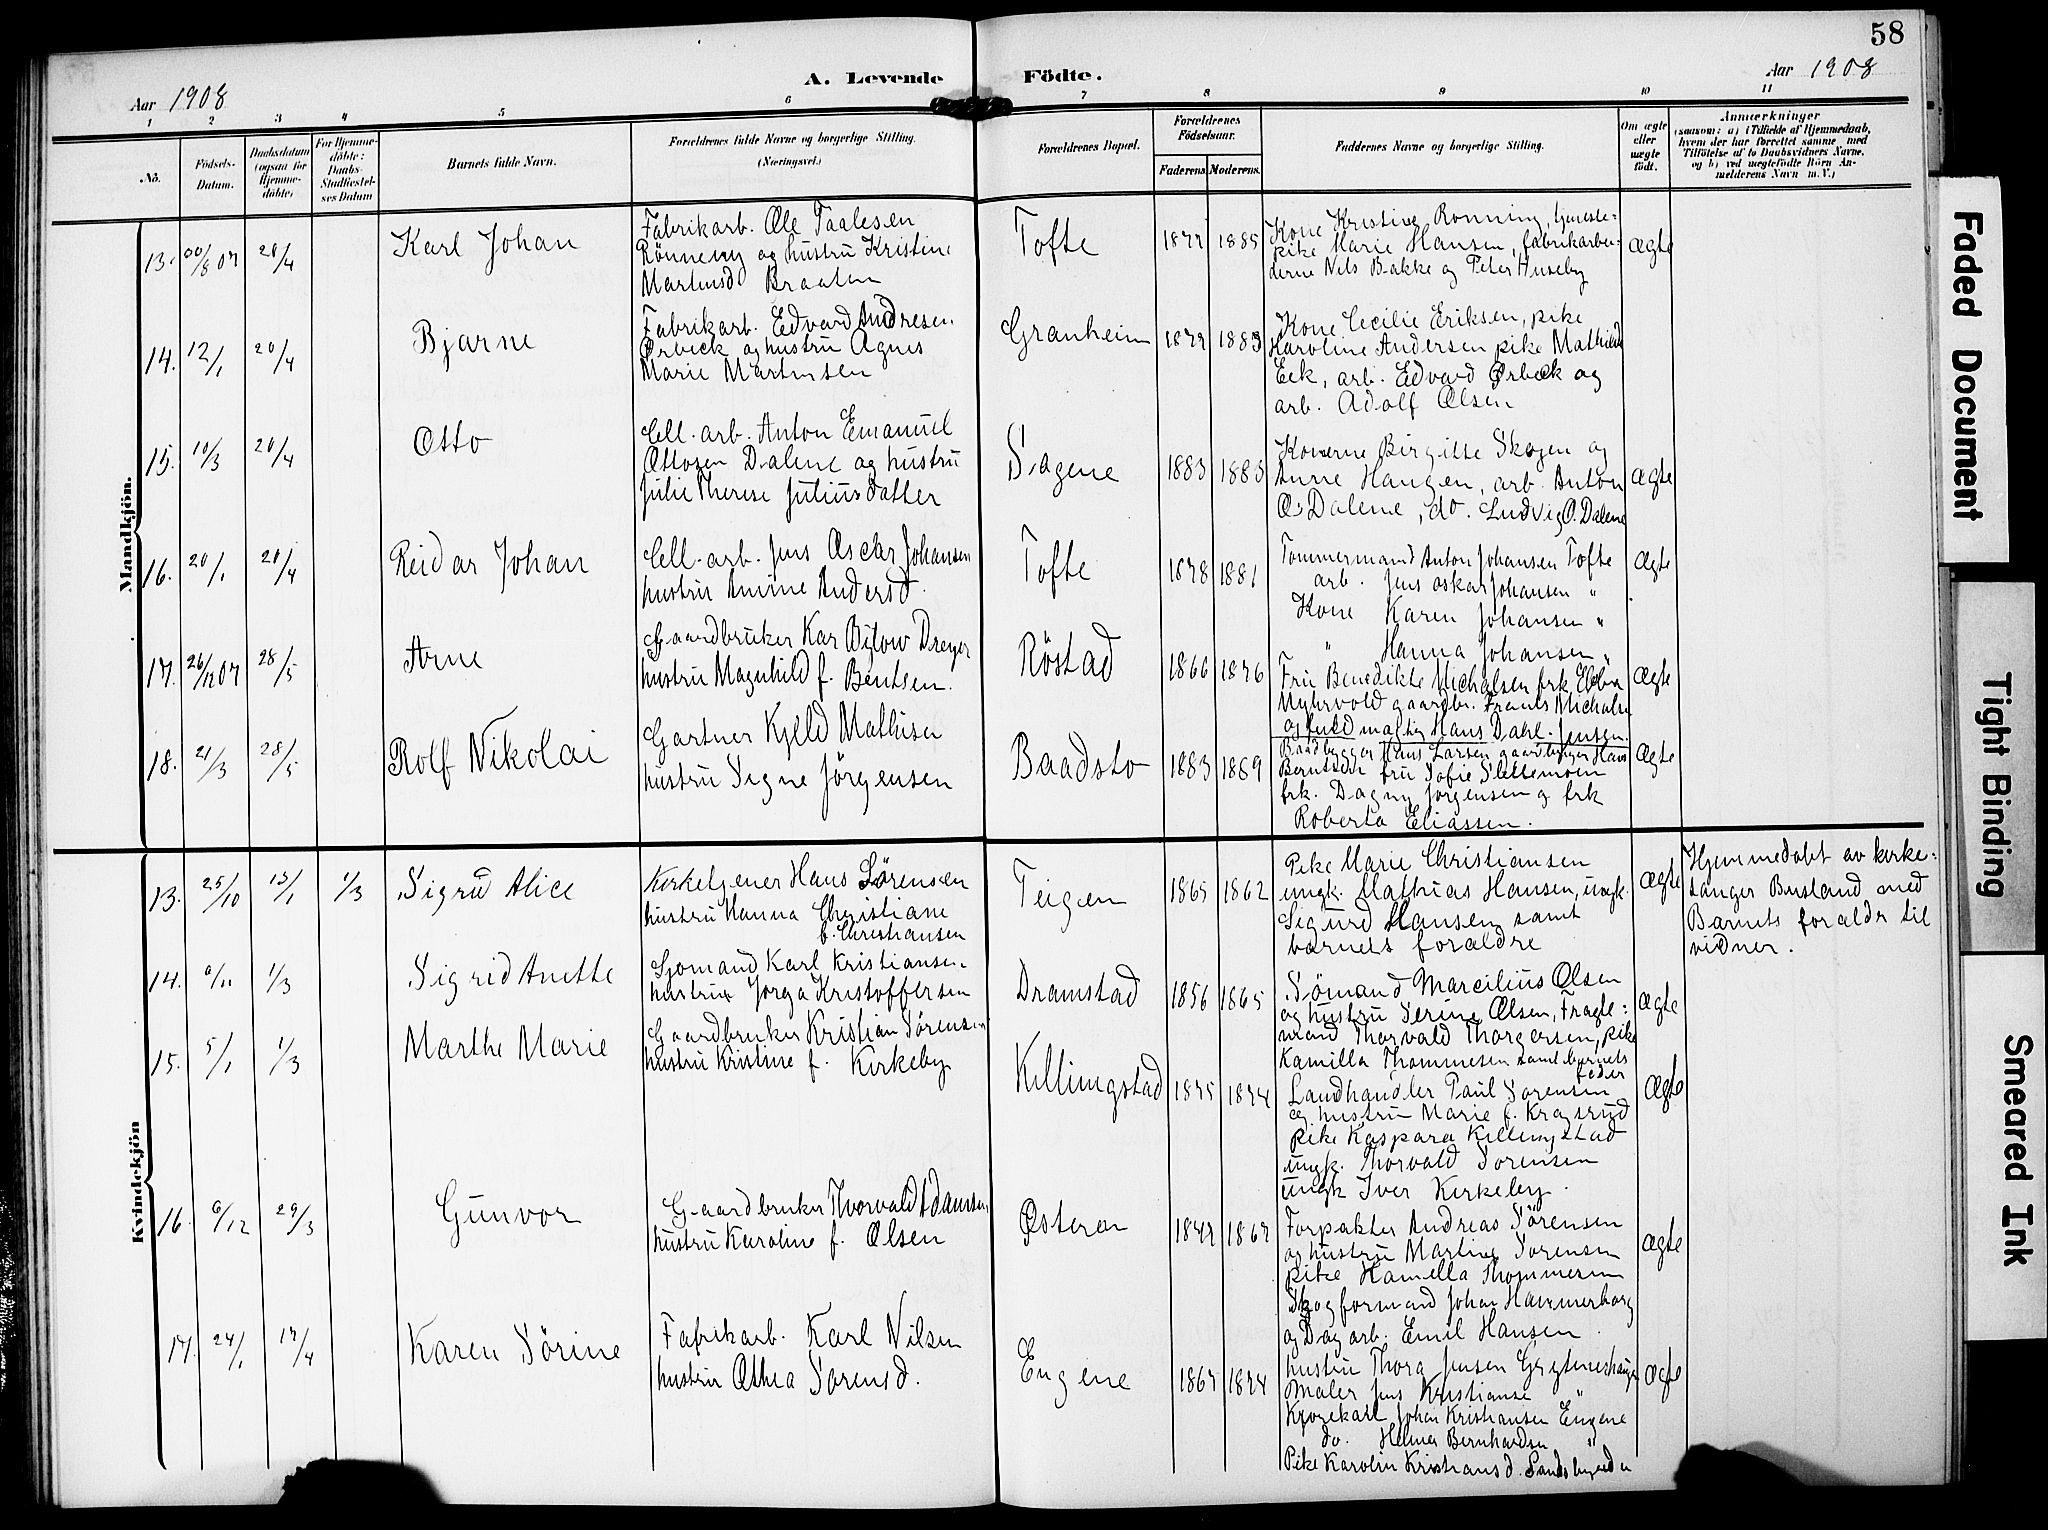 58
Aar 1908
A. Levende
Födte.
Aar 1908
1 2 3 4 5 6 7 8 9 10 11
No.
Födsels-
Datum.
Daabsdatum
(ogsaa for
Hjemme-
døbte)
For Hjemme-
døbte:
Daabs-
Stadfæstel-
ses Datum
Barnets fulde Navn.
Forældrenes fulde Navne og borgerlige Stilling.
(Næringsvei.)
Forældrenes Bopæl.
Forældrenes
Födselsaar.
Faderens. Moderens.
Faddernes Navne og borgerlige Stilling.
Om ægte
eller
uægte
födt.
Anmærkninger
(saasom: a) i Tilfælde af Hjemmedaab,
hvem der har forrettet samme med
Tilföielse af to Daabsvidners Navne,
og b) ved uægtefödte Börn An-
melderens Navn m. V.)
Mandkjön.
13. 20/4
Karl Johan
Fabrikarb. Ole Paalesen
Rönneng og hustru Kristine
Martinsd Braaten
Tofte
1877 1885
Kone Kristine Rønning, tjeneste=
pike Marie Hansen, fabrikarbei=
derne Nils Bakke og Peter Huseby
Ægte
14. 12/1 20/4
Bjarne
Fabrikarb. Edvard Andresen
Ørbeck og hustru Agnes
Marie Martinsen
Granheim
1879 1883
Kone Cecilie Eriksen, pike
Karoline Andersen pike Mathilde
Eek, arb. Edvard Ørbeck og
arb. Adolf Olsen
15. 10/3 20/4
Otto
Cell. arb. Anton Emanuel
Ottosen Dalene og hustru
Julie Therese Juliusdatter
Sagene
1883 1883
Konerne Birgitte Skogen og
Anne Haugen, arb. Anton
O. Dalene, do. Ludvig O. Dalene
Ægte
16. 20/1 20/4
Reidar Johan
Cell. arb. Jens Oscar Johansen
hustru Amine Andersd.
Tofte
1878 1881
Tømmermand Anton Johansen Tofte
arb. Jens oskar Johansen "
Kone Karen Johansen "
" Hanna Johansen "
Ægte
17. 26/12 07 28/5
Arne
Gaardbruker Kar Bylow Dreyer
hustru Magnhild f. Bentsen.
Röstad
1866 1876
Fru Benedikte Michalsen frk Ebba
Myhrvold gaardbr. Frants Michalsn
og fuldmægtig Hans Dahl-Jensen.
Ægte
18. 21/3 28/5
Rolf Nikolai
Gartner Kjeld Mathisen
hustru Signe Jörgensen
Baadstø
1883 1889
Baadbygger Hans Larsen gaardbruger Hans
Berntsen fru Sofie Slettemoen
frk. Dagny Jørgensen og frk
Roberta Eliassen.
Ægte
Kvindekjön
13. 25/10 13/1 1/3
Sigrud Alice
Kirketjener Hans Sørensen
hustru Hanna Christiane
f. Christiansen
Teigen
1865 1862
Pike Marie Christiansen
ungk. Mathias Hansen, ungk.
Sigurd Hansen samt
barnets forældre
Ægte
Hjemmedøbt av kirke=
sanger Busland med
Barnets forældr til
vidner.
14. 6/11 1/3
Sigrid Anette
Sjomand Karl Kristiansen
hustrue Jorga Kristoffersen
Dramstad
1856 1865
Sømand Marcilius Olsen
og hustru Serine Olsen, Fragte=
mand Thorvald Thorgersen, pike
Kamilla Thommesen samt barnets
feder
Ægte
15. 5/1 1/3
Marthe Marie
Gaardbruker Kristian Sørensen
hustru Kristine f. Kirkeby
Killingstad
1875 1874
Landhandler Paul Sorensen
og hustru Marie f. Kragsrud
pike Kaspara Killingstad
ungk. Thorvald Sorensen
ungk Iver Kirkeby.
Ægte
16. 6/12 29/3
Gunvor
Gaardbruker Thorvald Adamsen
hustru Karoline f. Olsen
Østeren
1867
Forpakter Andreas Sørensen
og hustru Martine Sorensen
pike Kamella Thommesen
Skogformand Johan Hammerborg
og Dagarb. Emil Hansen.
Ægte
17. 24/1 17/4
Karen Sörine
Fabrikarb. Karl Nilsen
hustru Othea Sorensd.
Engene
1867 1874
hustru Thora Jensen Grytneshaugen
Maler Jens Kristianse "
Kjørekarl Johan Kristiansen Engene
do. Helmer Bernhardsen "
Pike Karolin Kristiansd.
Ægte
Faded Document
Tight Binding
Smeared Ink